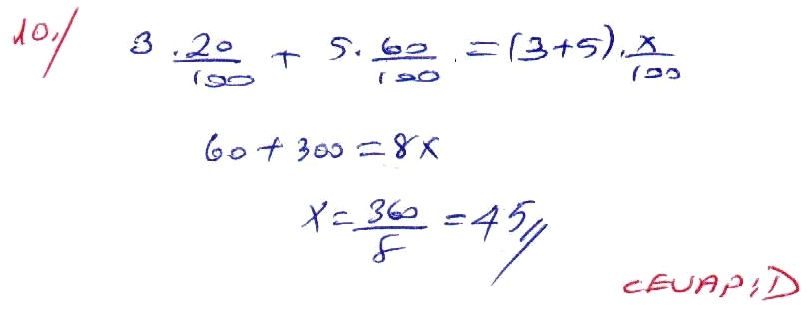 10-/ 3 . 20/100 + 5 . 60/100 = (3+5) . x/100
60 + 300 = 8x
x = 360/8 = 45//
CEVAP : D